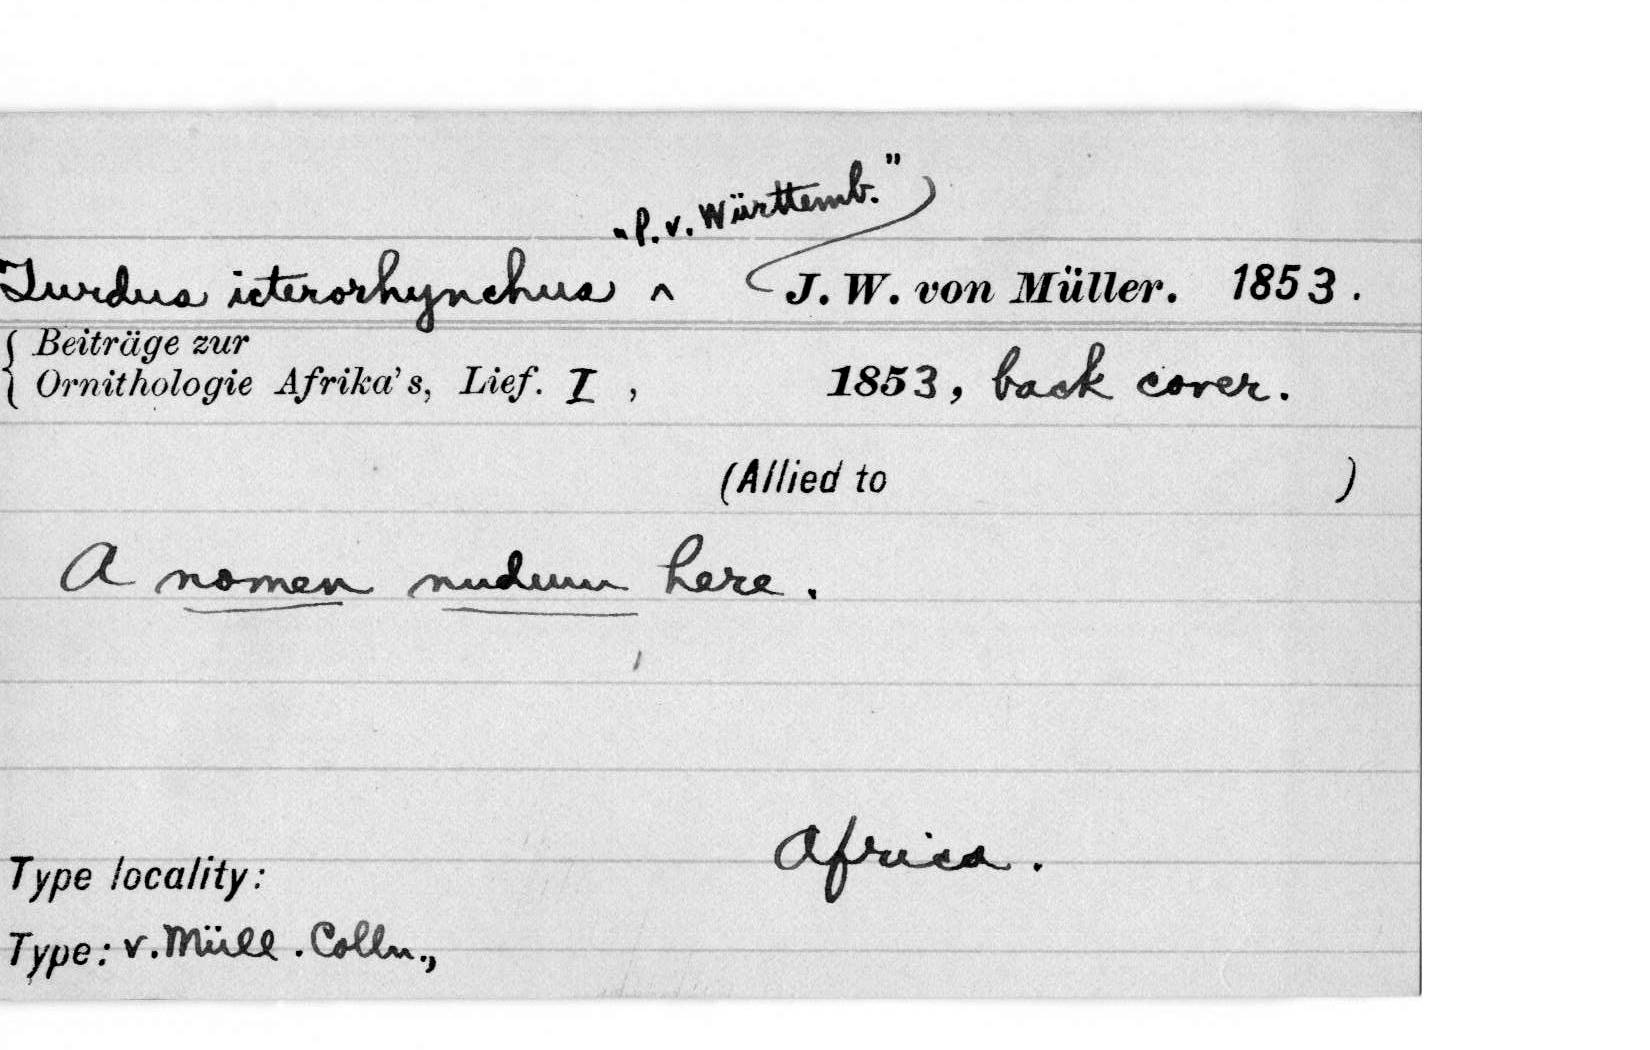 "P. v. Württemb."
Turdus icterorhynchus ^ J. W. von Müller. 1853.
Beiträge zur
Ornithologie Afrika's, Lief. I, 1853, back cover.
(Allied to )
A nomen nudum here.
Africa.
Type locality:
Type: v. Müll. Colln.,